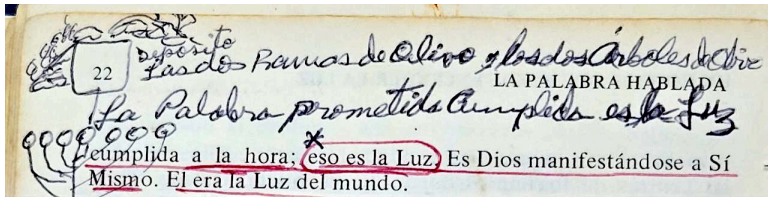 Depósito
Las dos Ramas de Olivo y los dos Árboles de Olivo
22
LA PALABRA HABLADA
La Palabra prometida Cumplida es la Luz
cumplida a la hora; eso es la Luz. Es Dios manifestándose a Sí
Mismo. El era la Luz del mundo.